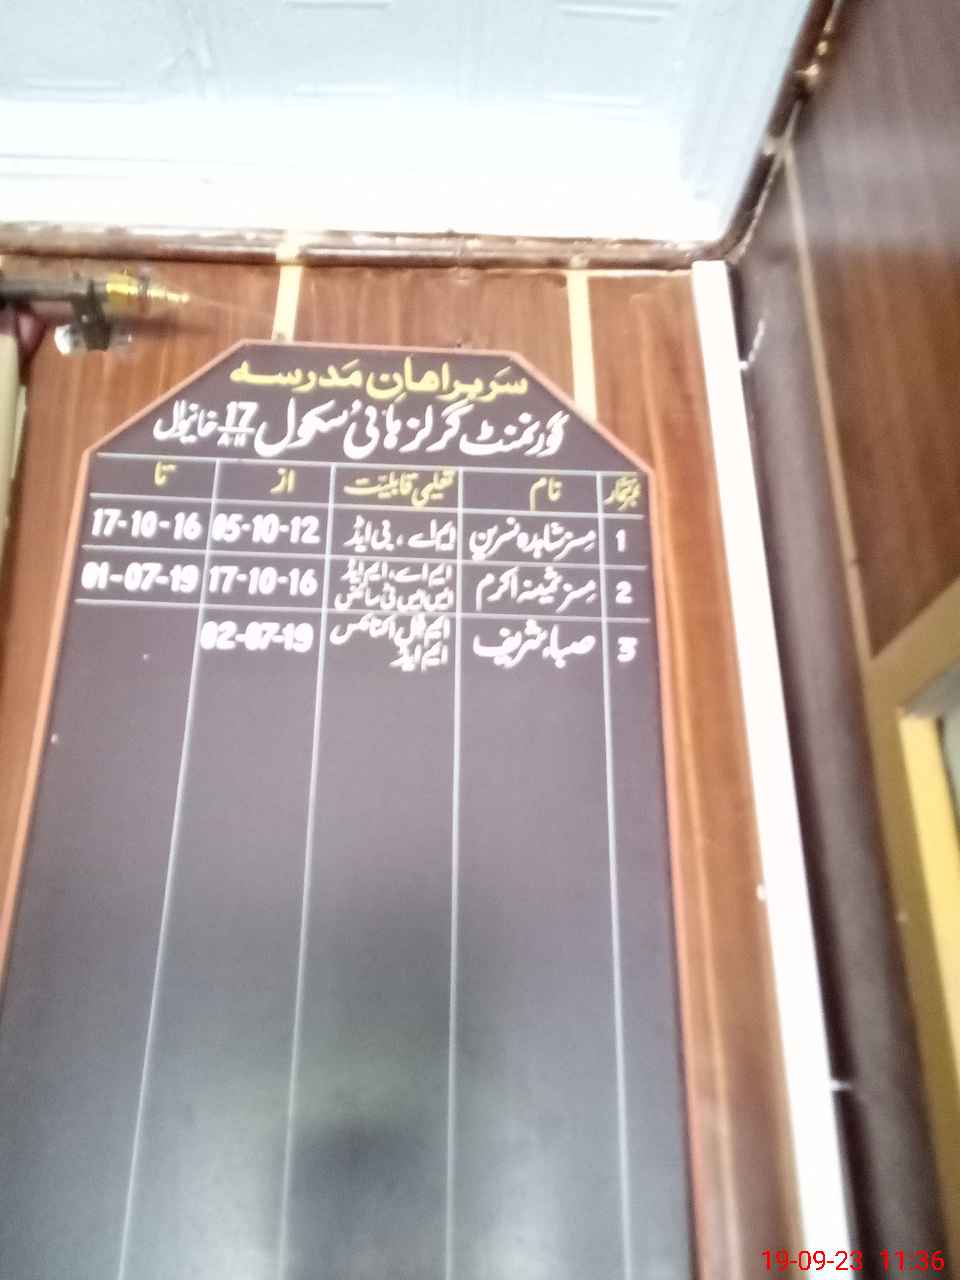 سربراھانِ مَدرسہ
گورنمنٹ گرلز ہائی سکول 17/A.H خانیوال
نمبرشمار نام تعلیمی قابلیّت از تا
1 مسز شاہدہ نسرین ایم اے ، بی ایڈ 05-10-12 17-10-16
2 مسز ثمینہ اکرم ایم اے، ایم ایڈ 17-10-16 01-07-19
ایس ایس ٹی سائنس
3 صباء شریف ایم فل اکنامکس 02-07-19
ایم ایڈ
19-09-23 11:36